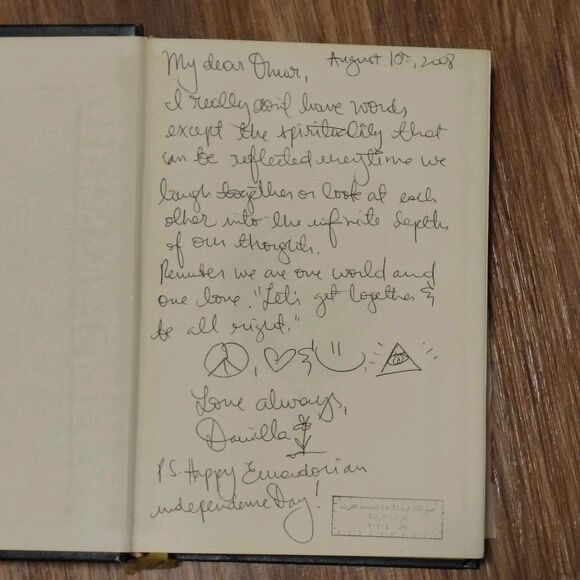 August 10th, 2008
My dear Omar,
I really don't have words
except the spirituality that
can be reflected everytime we
laugh together or look at each
other into the infinite depths
of our thoughts.
Remember we are one world and
one love. "Let's get together &
be all right."
, & ,
Love always,
Danilla
P.S. Happy Ecuadorian
independence Day!